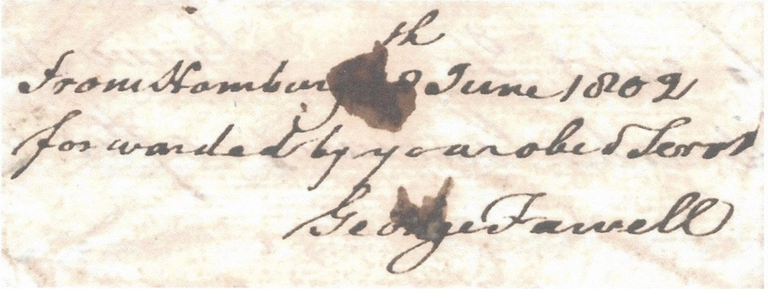 From Hamburg 8th June 1802
forwarded by your obed Servt
George Fawell